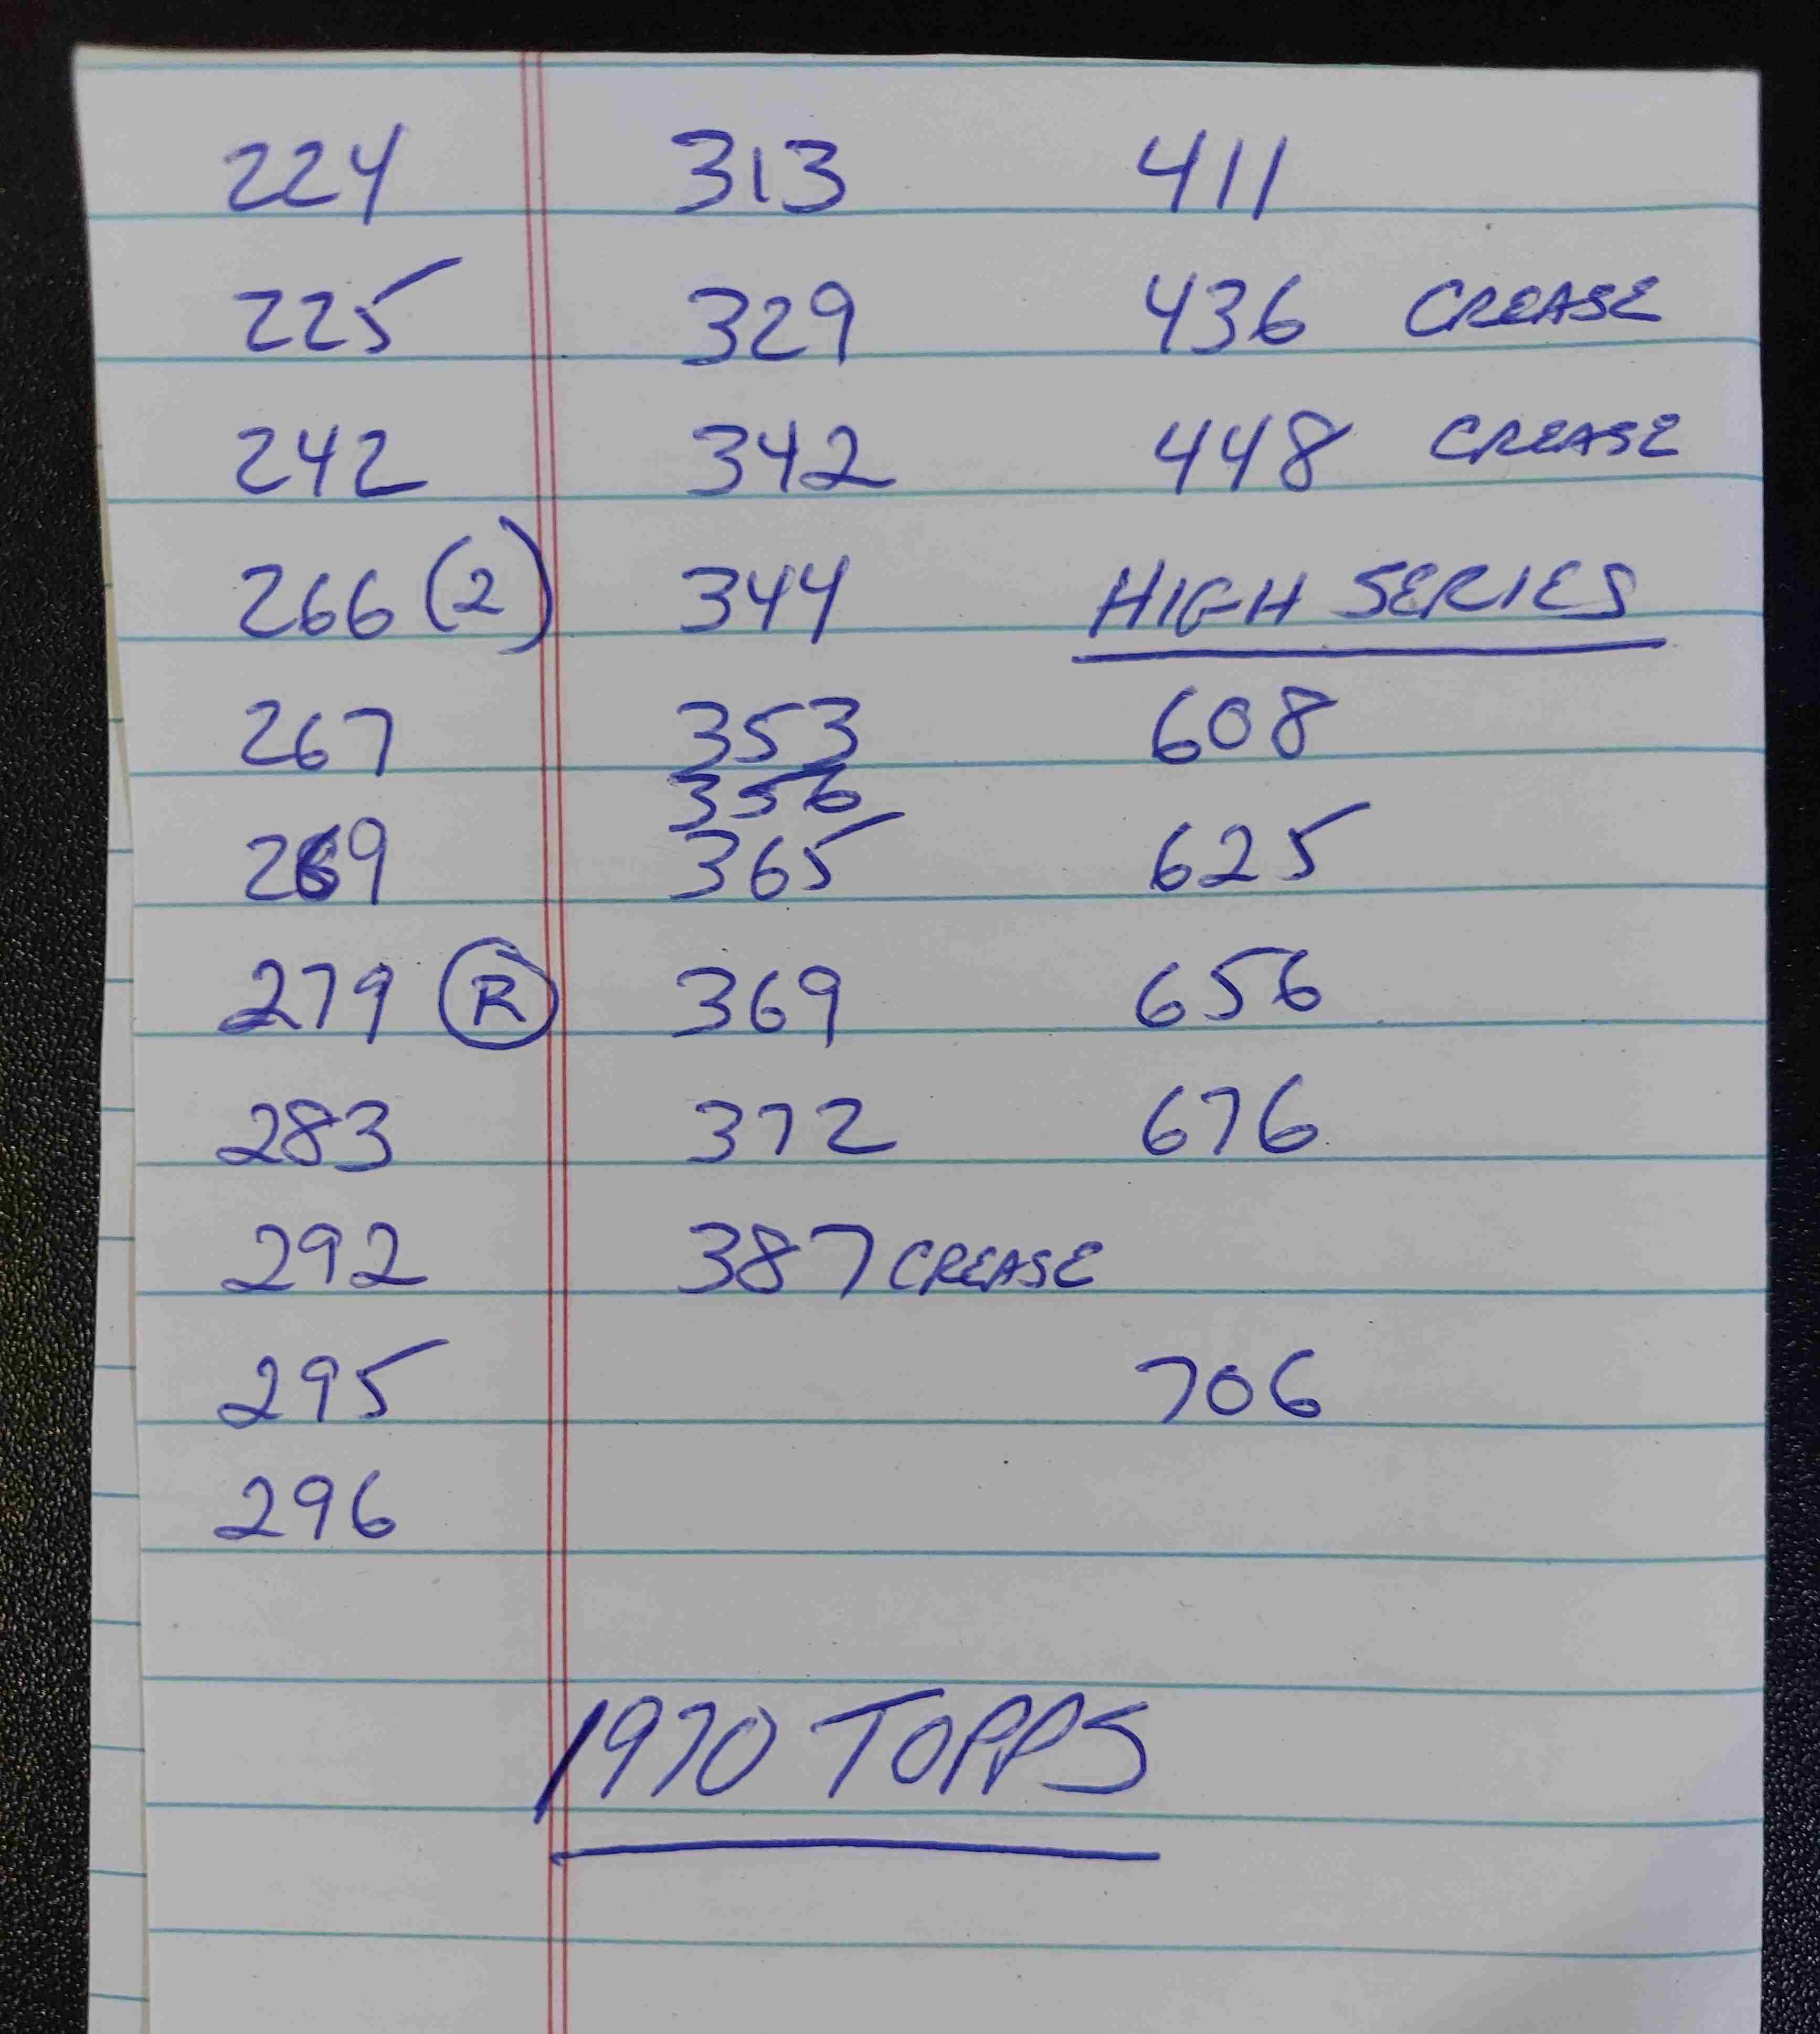 224 313 411
225 329 436 CREASE
242 342 448 CREASE
266 (2) 344 HIGH SERIES
267 353 608
356
269 365 625
279 R 369 656
283 372 676
292 387 CREASE
295 706
296
1970 TOPPS